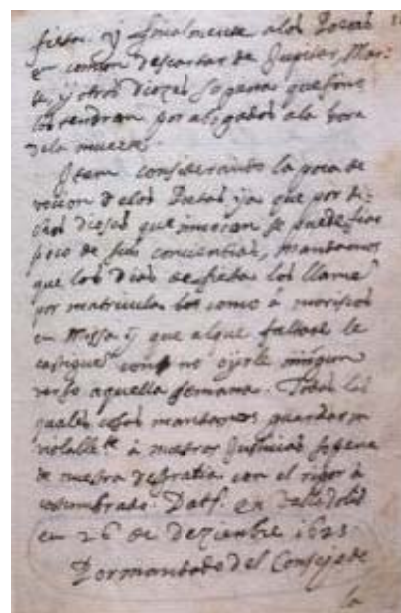 fiesta y finalmente a los Poetas
en comun descartar de Jupiter, Mar
te, y otros Diozes so pena que
los tendran por abogados ala hora
dela muerte.
Item considerando la poca de
vocion delos Poetas ya que por di
chos diozes que invocan, se puede fiar
poco de sus conciencias, Mandamos
que los Dias de fiesta los llamen
por matricula como á moriscos
en Missa y que al que faltare le
castiguen con no oyrle ningun
verso aquella semana. Todas las
quales cosas mandamos guardar
á nuestros Justicias so pena
de nuestra desgratia con el rigor a
costumbrado. Datt. en Valledolid
en 26 de Deziembre 1623
Por mandado del Consejo de
la